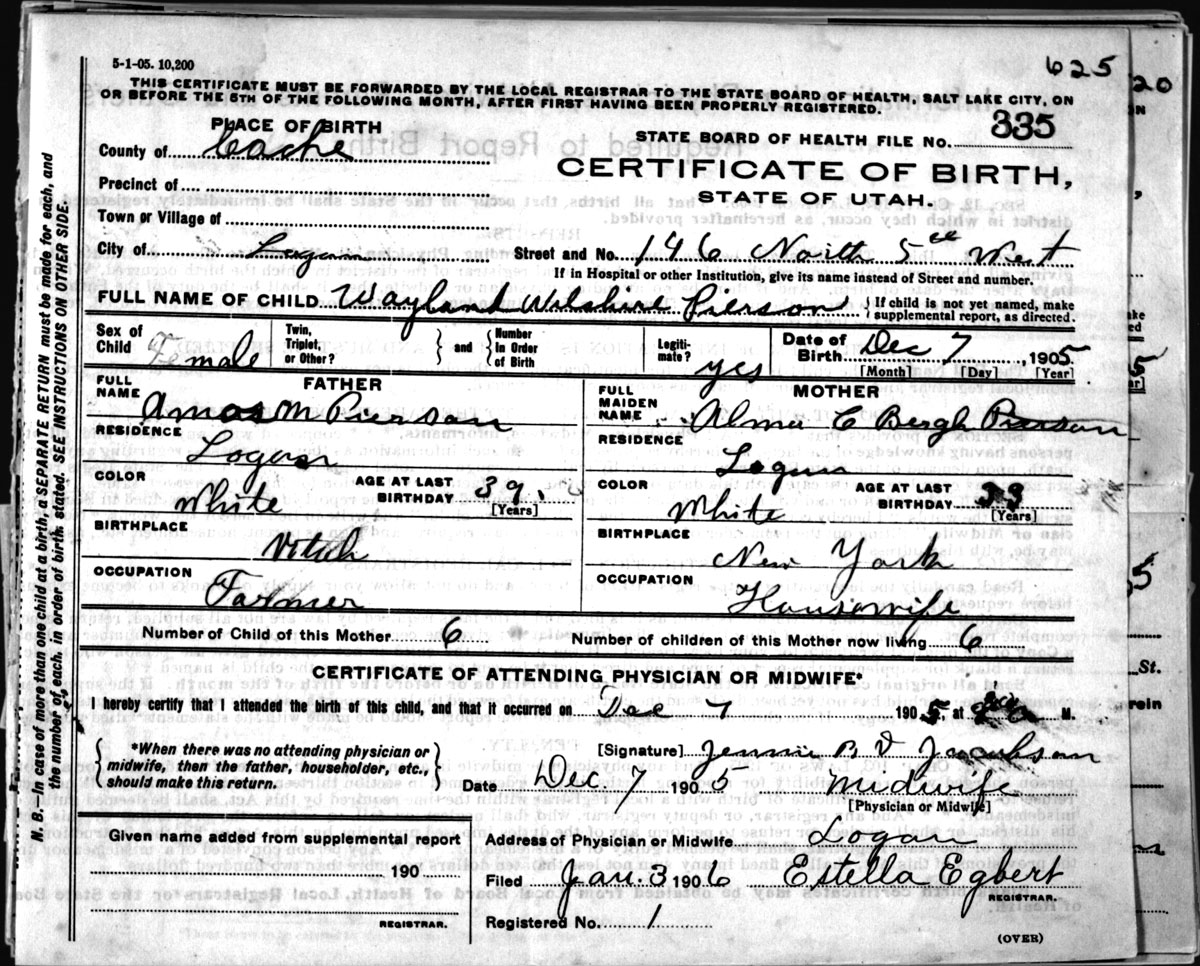 5-1-05. 10,200
625
THIS CERTIFICATE MUST BE FORWARDED BY THE LOCAL REGISTRAR TO THE STATE BOARD OF HEALTH, SALT LAKE CITY, ON
OR BEFORE THE 5TH OF THE FOLLOWING MONTH, AFTER FIRST HAVING BEEN PROPERLY REGISTERED.
PLACE OF BIRTH
STATE BOARD OF HEALTH FILE No. 335
County of Cache
CERTIFICATE OF BIRTH,
STATE OF UTAH.
Precinct of
Town or Village of
City of Logan Street and No. 146 North 5th West
If in Hospital or other Institution, give its name instead of Street and number.
FULL NAME OF CHILD Wayland Wilshir Pierson { If child is not yet named, make
supplemental report, as directed.
Sex of
Child male
Twin,
Triplet,
or Other? } and { Number
in Order
of Birth
Legiti-
mate? yes
Date of
Birth Dec 7, 1905
[Month] [Day] [Year]
FATHER
FULL
NAME Amos M Pierson
RESIDENCE
Logan
COLOR
White
AGE AT LAST
BIRTHDAY 39
[Years]
BIRTHPLACE
Utah
OCCUPATION
Farmer
MOTHER
FULL
MAIDEN
NAME Alma C Bergh Pierson
RESIDENCE
Logan
COLOR
White
AGE AT LAST
BIRTHDAY 33
[Years]
BIRTHPLACE
New York
OCCUPATION
Housewife
Number of Child of this Mother 6 Number of children of this Mother now living 6
CERTIFICATE OF ATTENDING PHYSICIAN OR MIDWIFE*
I hereby certify that I attended the birth of this child, and that it occurred on Dec 7 1905, at M.
{ *When there was no attending physician or
midwife, then the father, householder, etc.,
should make this return. }
[Signature] Jennie B V Jacobson
Date Dec 7 1905 Midwife
[Physician or Midwife]
Given name added from supplemental report
190
REGISTRAR.
Address of Physician or Midwife Logan
Filed Jan. 3 1906 Estella Egbert
REGISTRAR.
Registered No. 1
(OVER)
N. B.—In case of more than one child at a birth, a SEPARATE RETURN must be made for each, and
the number of each, in order of birth, stated. SEE INSTRUCTIONS ON OTHER SIDE.